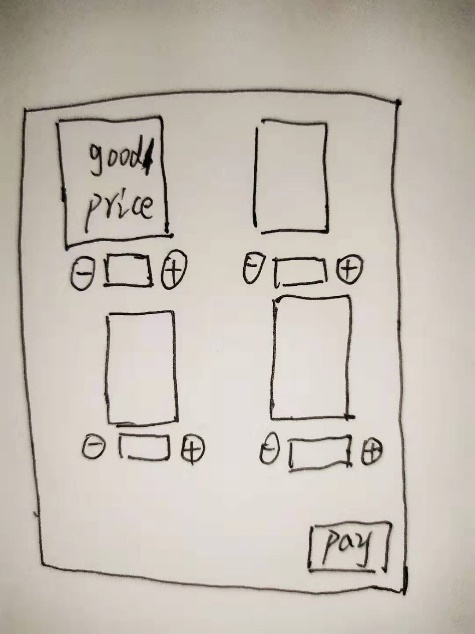 good
price
⊖ ⊕ ⊖ ⊕
⊖ ⊕ ⊖ ⊕
pay